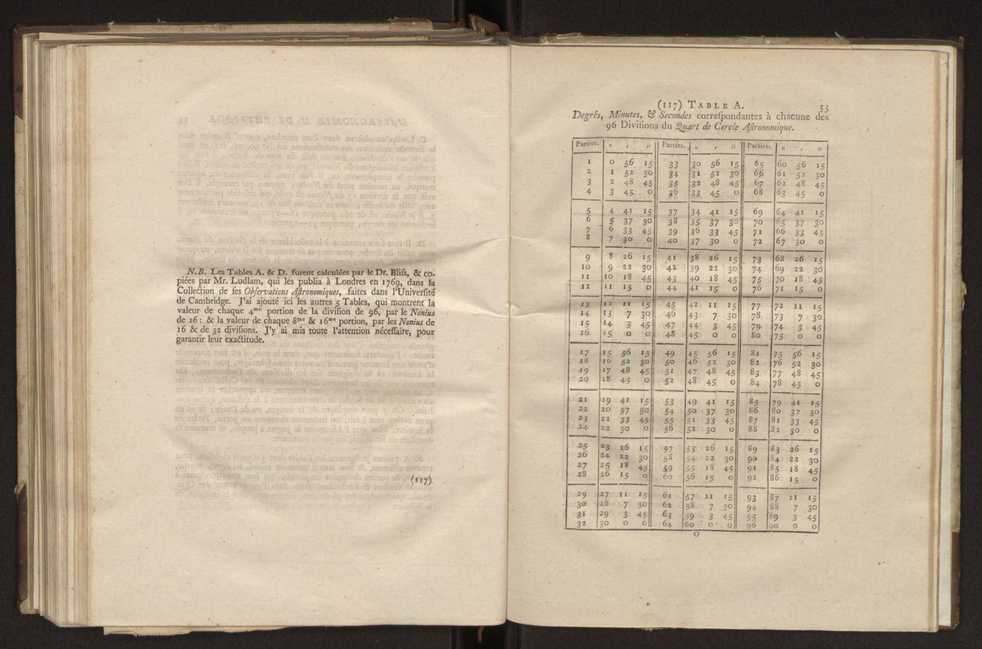 N.B. Les Tables A. & D. furent calculées par le Dr. Bliss, & co-
piées par Mr. Ludlam, qui les publia à Londres en 1769, dans la
Collection de ses Observations Astronomiques, faites dans l'Université
de Cambridge. J'ai ajouté ici les autres 3 Tables, qui montrent la
valeur de chaque 4me portion de la division de 96, par le Nonius
de 16: & la valeur de chaque 8me & 16me portion, par les Nonius de
16 & de 32 divisions. J'y ai mis toute l'attention nécessaire, pour
garantir leur exactitude.
(117)
(117) TABLE A. 53
Degrés, Minutes, & Secondes correspondantes à chacune des
96 Divisions du Quart de Cercle Astronomique.
Parties. ° ′ ″ Parties. ° ′ ″ Parties. ° ′ ″
1 0 56 15 33 30 56 15 65 60 56 15
2 1 52 30 34 31 52 30 66 61 52 30
3 2 48 45 35 32 48 45 67 62 48 45
4 3 45 0 36 33 45 0 68 63 45 0
5 4 41 15 37 34 41 15 69 64 41 15
6 5 37 30 38 35 37 30 70 65 37 30
7 6 33 45 39 36 33 45 71 66 33 45
8 7 30 0 40 37 30 0 72 67 30 0
9 8 26 15 41 38 26 15 73 68 26 15
10 9 22 30 42 39 22 30 74 69 22 30
11 10 18 45 43 40 18 45 75 70 18 45
12 11 15 0 44 41 15 0 76 71 15 0
13 12 11 15 45 42 11 15 77 72 11 15
14 13 7 30 46 43 7 30 78 73 7 30
15 14 3 45 47 44 3 45 79 74 3 45
16 15 0 0 48 45 0 0 80 75 0 0
17 15 56 15 49 45 56 15 81 75 56 15
18 16 52 30 50 46 52 30 82 76 52 30
19 17 48 45 51 47 48 45 83 77 48 45
20 18 45 0 52 48 45 0 84 78 45 0
21 19 41 15 53 49 41 15 85 79 41 15
22 20 37 30 54 50 37 30 86 80 37 30
23 21 33 45 55 51 33 45 87 81 33 45
24 22 30 0 56 52 30 0 88 82 30 0
25 23 26 15 57 53 26 15 89 83 26 15
26 24 22 30 58 54 22 30 90 84 22 30
27 25 18 45 59 55 18 45 91 85 18 45
28 26 15 0 60 56 15 0 92 86 15 0
29 27 11 15 61 57 11 15 93 87 11 15
30 28 7 30 62 58 7 30 94 88 7 30
31 29 3 45 63 59 3 45 55 89 3 45
32 30 0 0 64 60 0 0 96 90 0 0
O